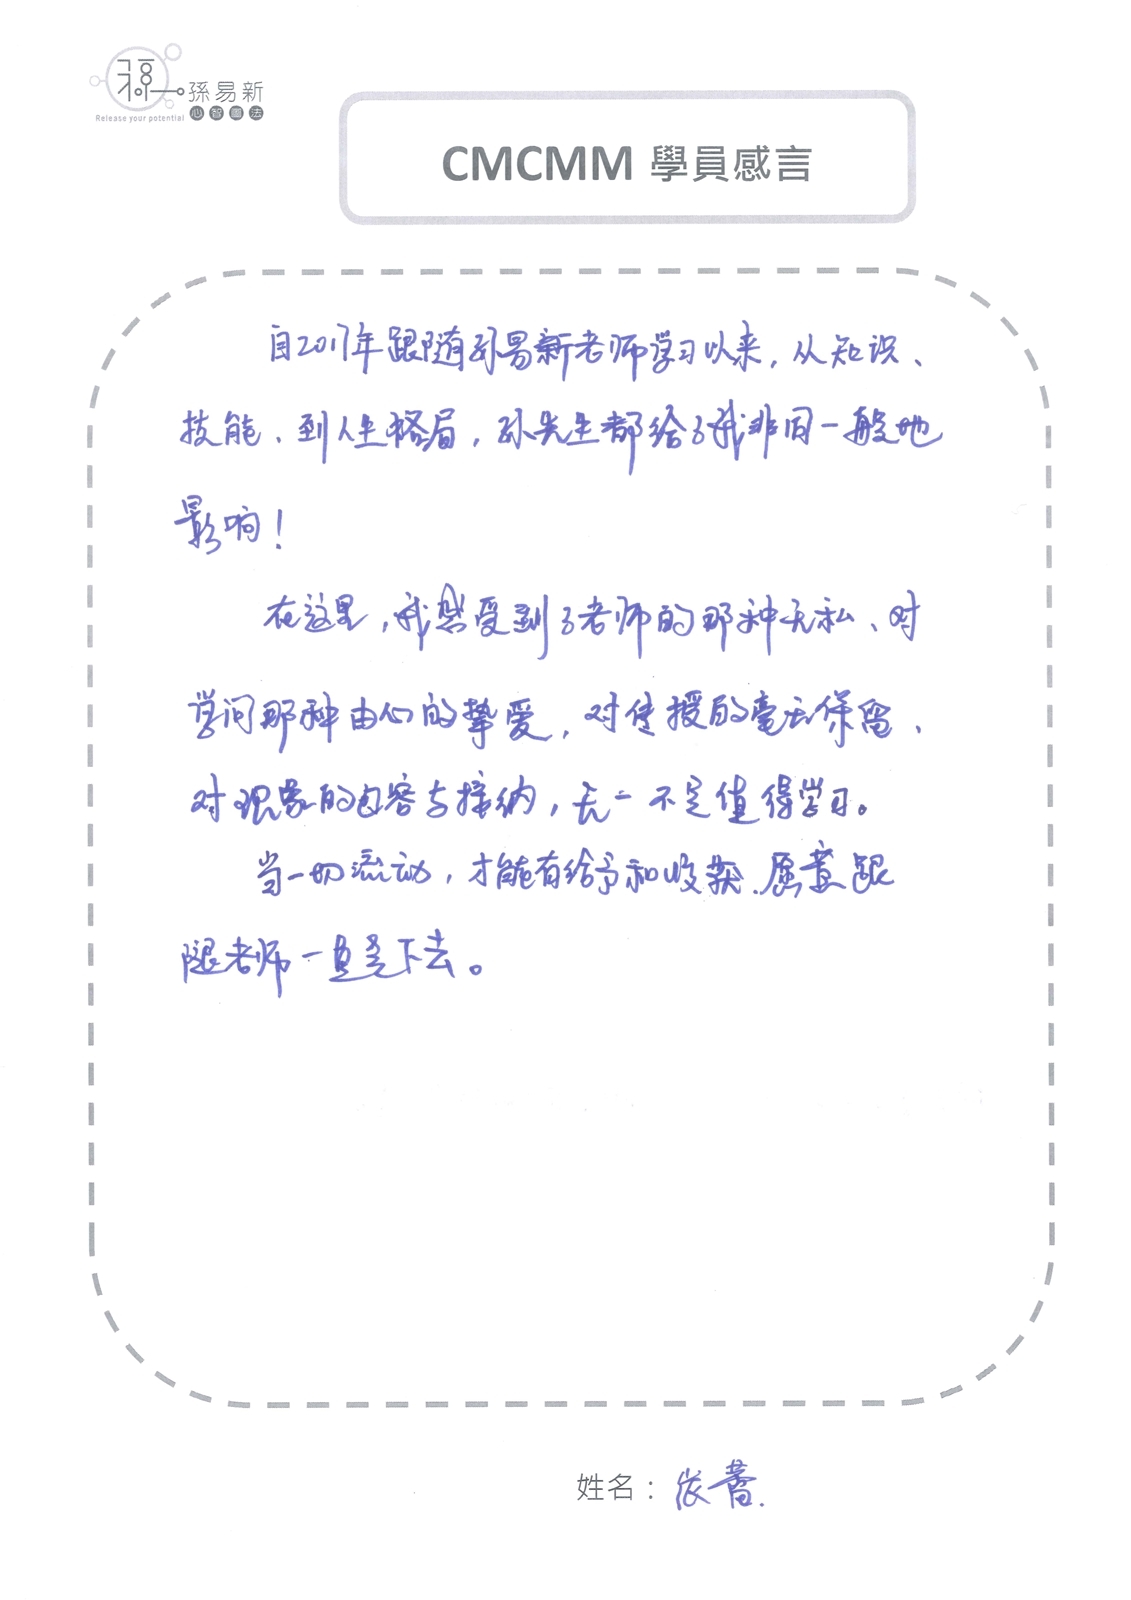 孫易新
Release your potential
心智圖法
CMCMM 學員感言
自2017年跟随孙易新老师学习以来，从知识、
技能、到人生格局，孙先生都给了我非同一般地
影响！
在这里，我感受到了老师的那种无私、对
学问那种由心的挚爱，对传授的毫无保留、
对现象的包容与接纳，无一不是值得学习。
当一切流动，才能有给予和收获.愿意跟
随老师一直走下去。
姓名：张蕾.